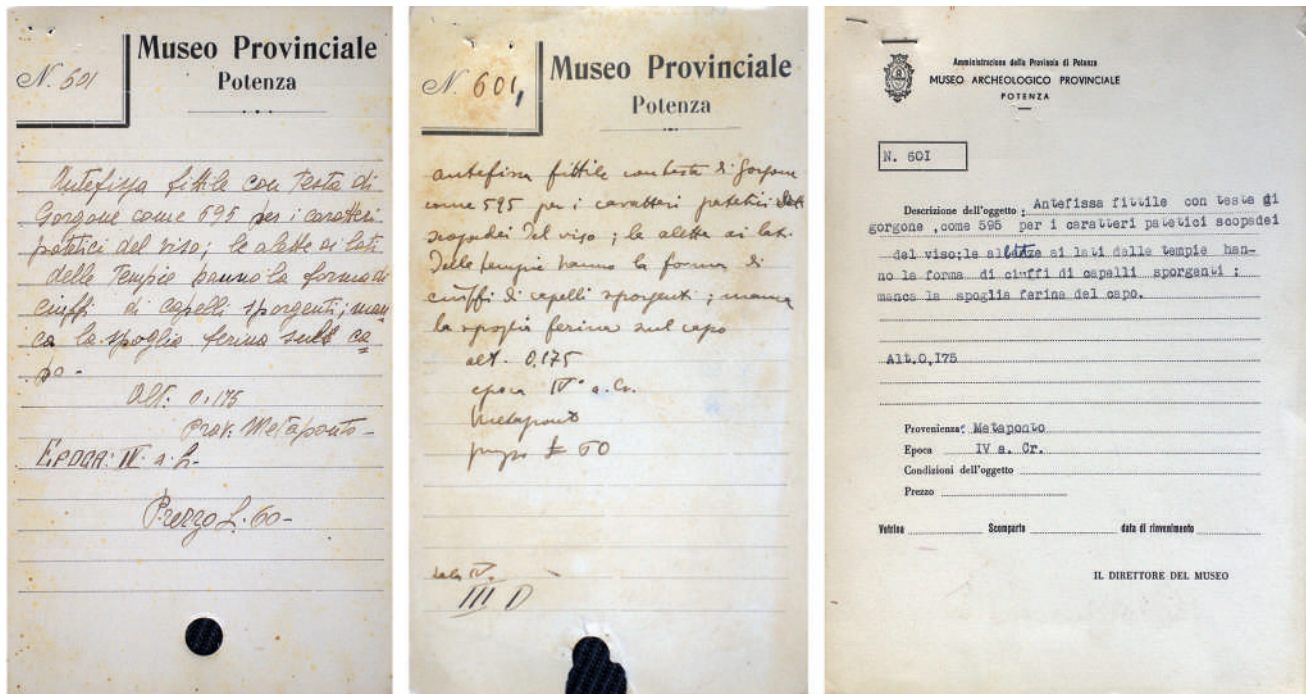 Museo Provinciale
Potenza
N. 601
Antefissa fittile con testa di
Gorgone come 595 per i caratteri
patetici del viso; le alette ai lati
delle tempie hanno la forma di
ciuffi di capelli sporgenti; man
ca la spoglia ferina sull ca
po-
Alt: 0,175
Prov: Metaponto-
EPOCA: IV. a.
Prezzo L. 60-
Museo Provinciale
Potenza
N. 601,
antefissa fittile con testa di Gorgone
come 595 per i caratteri patetici
scopadei del viso; le alette ai lati
delle tempie hanno la forma di
ciuffi di capelli sporgenti; manca
la spoglia ferina sul capo
alt. 0,175
epoca IV° a. Cr.
Metaponto
prezzo £ 60
IV.
III D
Amministrazione della Provincia di Potenza
MUSEO ARCHEOLOGICO PROVINCIALE
POTENZA
N. 60I
Descrizione dell'oggetto: Antefissa fittile con testa di
gorgone ,come 595 per i caratteri patetici scopadei
del viso;le alette ai lati dalle tempie han-
no la forma di ciuffi di capelli sporgenti ;
manca la spoglia ferina del capo.
Alt.0,I75
Provenienza: Metaponto
Epoca IV a. Cr.
Condizioni dell'oggetto
Prezzo
Vetrina Scomparto data di rinvenimento
IL DIRETTORE DEL MUSEO